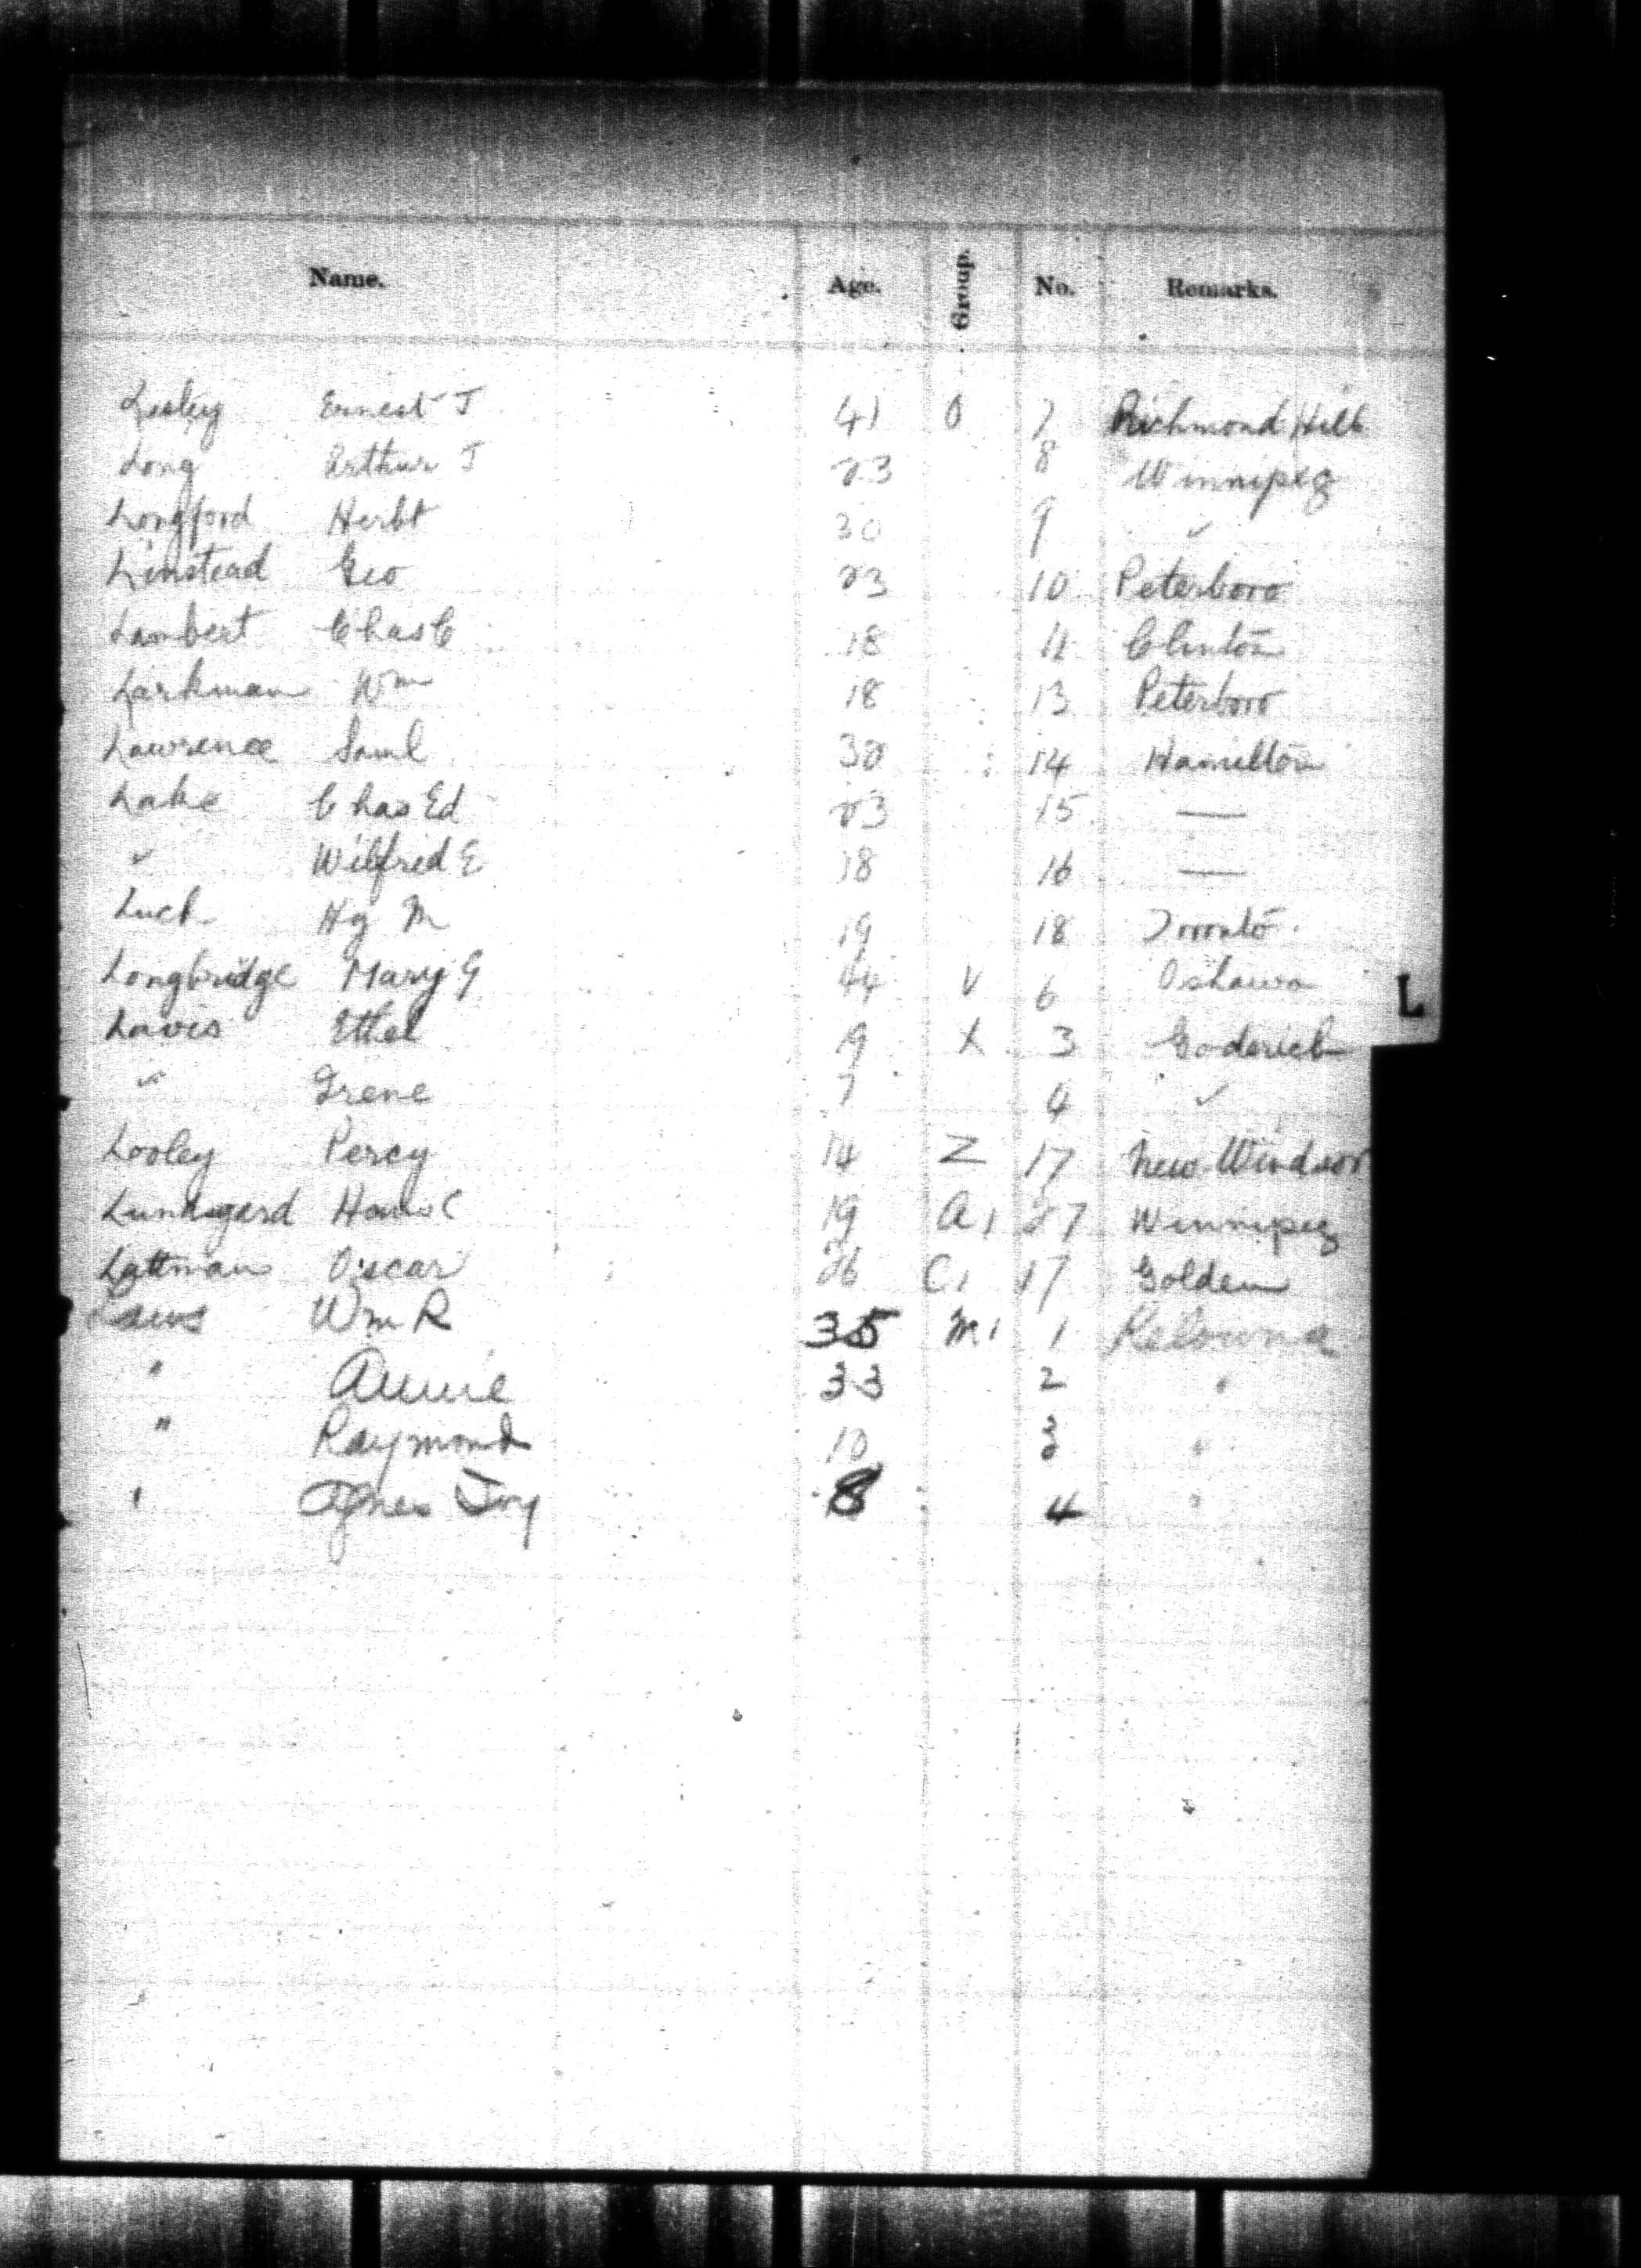 Name. Age. Group. No. Remarks.
Lesley Ernest J 41 O 7 Richmond Hill
Long Arthur J 23 8 Winnipeg
Longford Herbt 30 9 "
Linstead Geo 23 10 Peterboro
Lambert Chas C 18 11 Clinton
Larkman Wm 18 13 Peterboro
Lawrence Saml 14 Hamilton
Lake Chas Ed 23 15 —
" Wilfred E 18 16 —
Luck Hy M 19 18 Toronto
Longbridge Mary G 44 V 6 Oshawa
L
Lavis Ethel 9 X 3 Goderich
" Irene 7 4 "
Looley Percy 14 Z 17 New Windsor
Hans C 19 A1 27 Winnipeg
Oscar 26 C1 17 Golden
Laws Wm R 35 M1 1 Kelowna
" Annie 33 2 "
" Raymond 10 3 "
" Agnes Joy 8 4 "